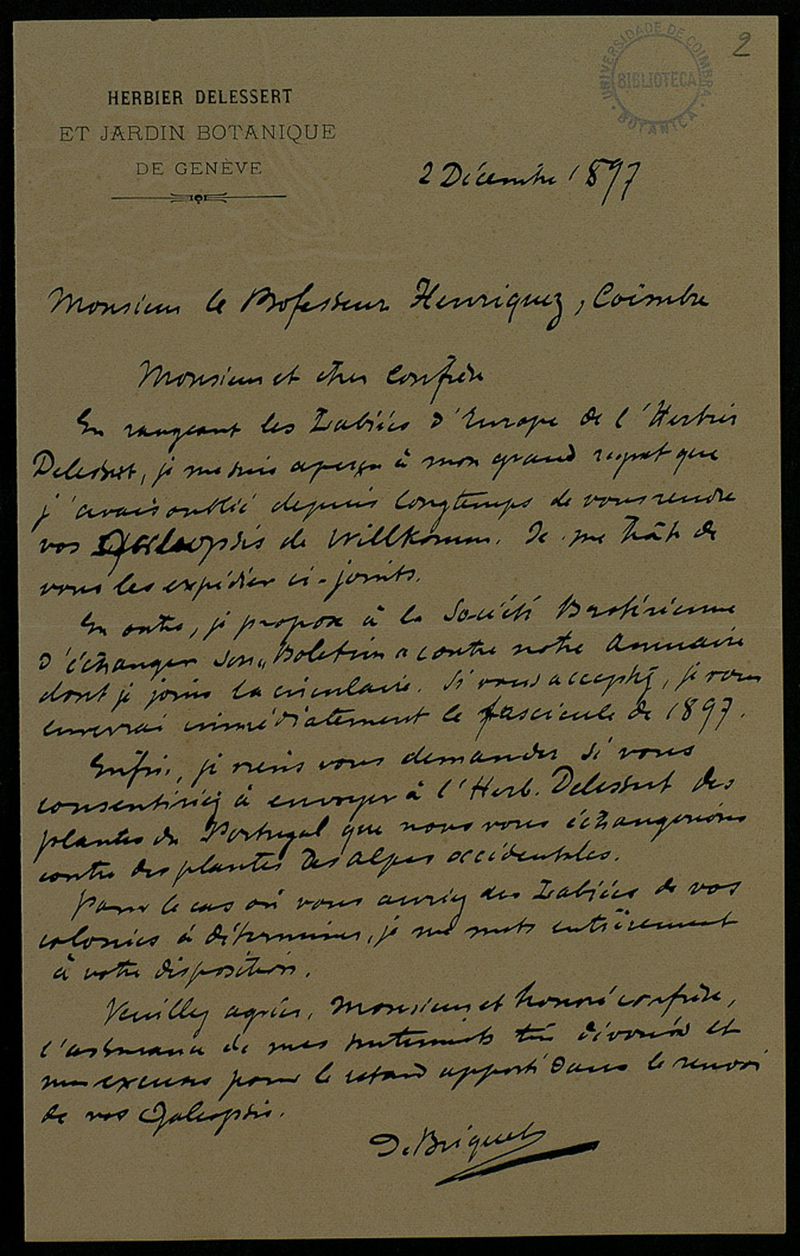 2
UNIVERSIDADE DE COIMBRA
BIBLIOTECA
BOTANICA
HERBIER DELESSERT
ET JARDIN BOTANIQUE
DE GENÈVE
2 Décembre 1897
Monsieur le Professeur Henriquez, Coimbre
Monsieur et cher confrère
En rangeant les Labiées d'Europe de l'Herbier
Delessert, je me suis aperçu à mon grand regret que
j'avais oublié depuis longtemps de vous rendre
vos Galeopsis de Willkomm. Je me hâte de
vous les expédier ci-joints.
En outre, je propose à la Société Brotérienne
d'échanger son „Boletim" contre notre Annuaire
dont je joins la circulaire. Si vous acceptez, je vous
enverrai immédiatement le fascicule de 1897.
Enfin, je viens vous demander si vous
consentiriez à envoyer à l'Herb. Delessert des
plantes du Portugal que nous vous échangerions
contre des plantes des Alpes occidentales.
Pour le cas où vous auriez des Labiées de vos
colonies à déterminer, je me mets entièrement
à votre disposition.
Veuillez agréer, Monsieur et honoré confrère,
l'assurance de mes sentiments très dévoués et
mes excuses pour le retard apporté dans le renvoi
de vos Galeopsis.
Dr Briquet